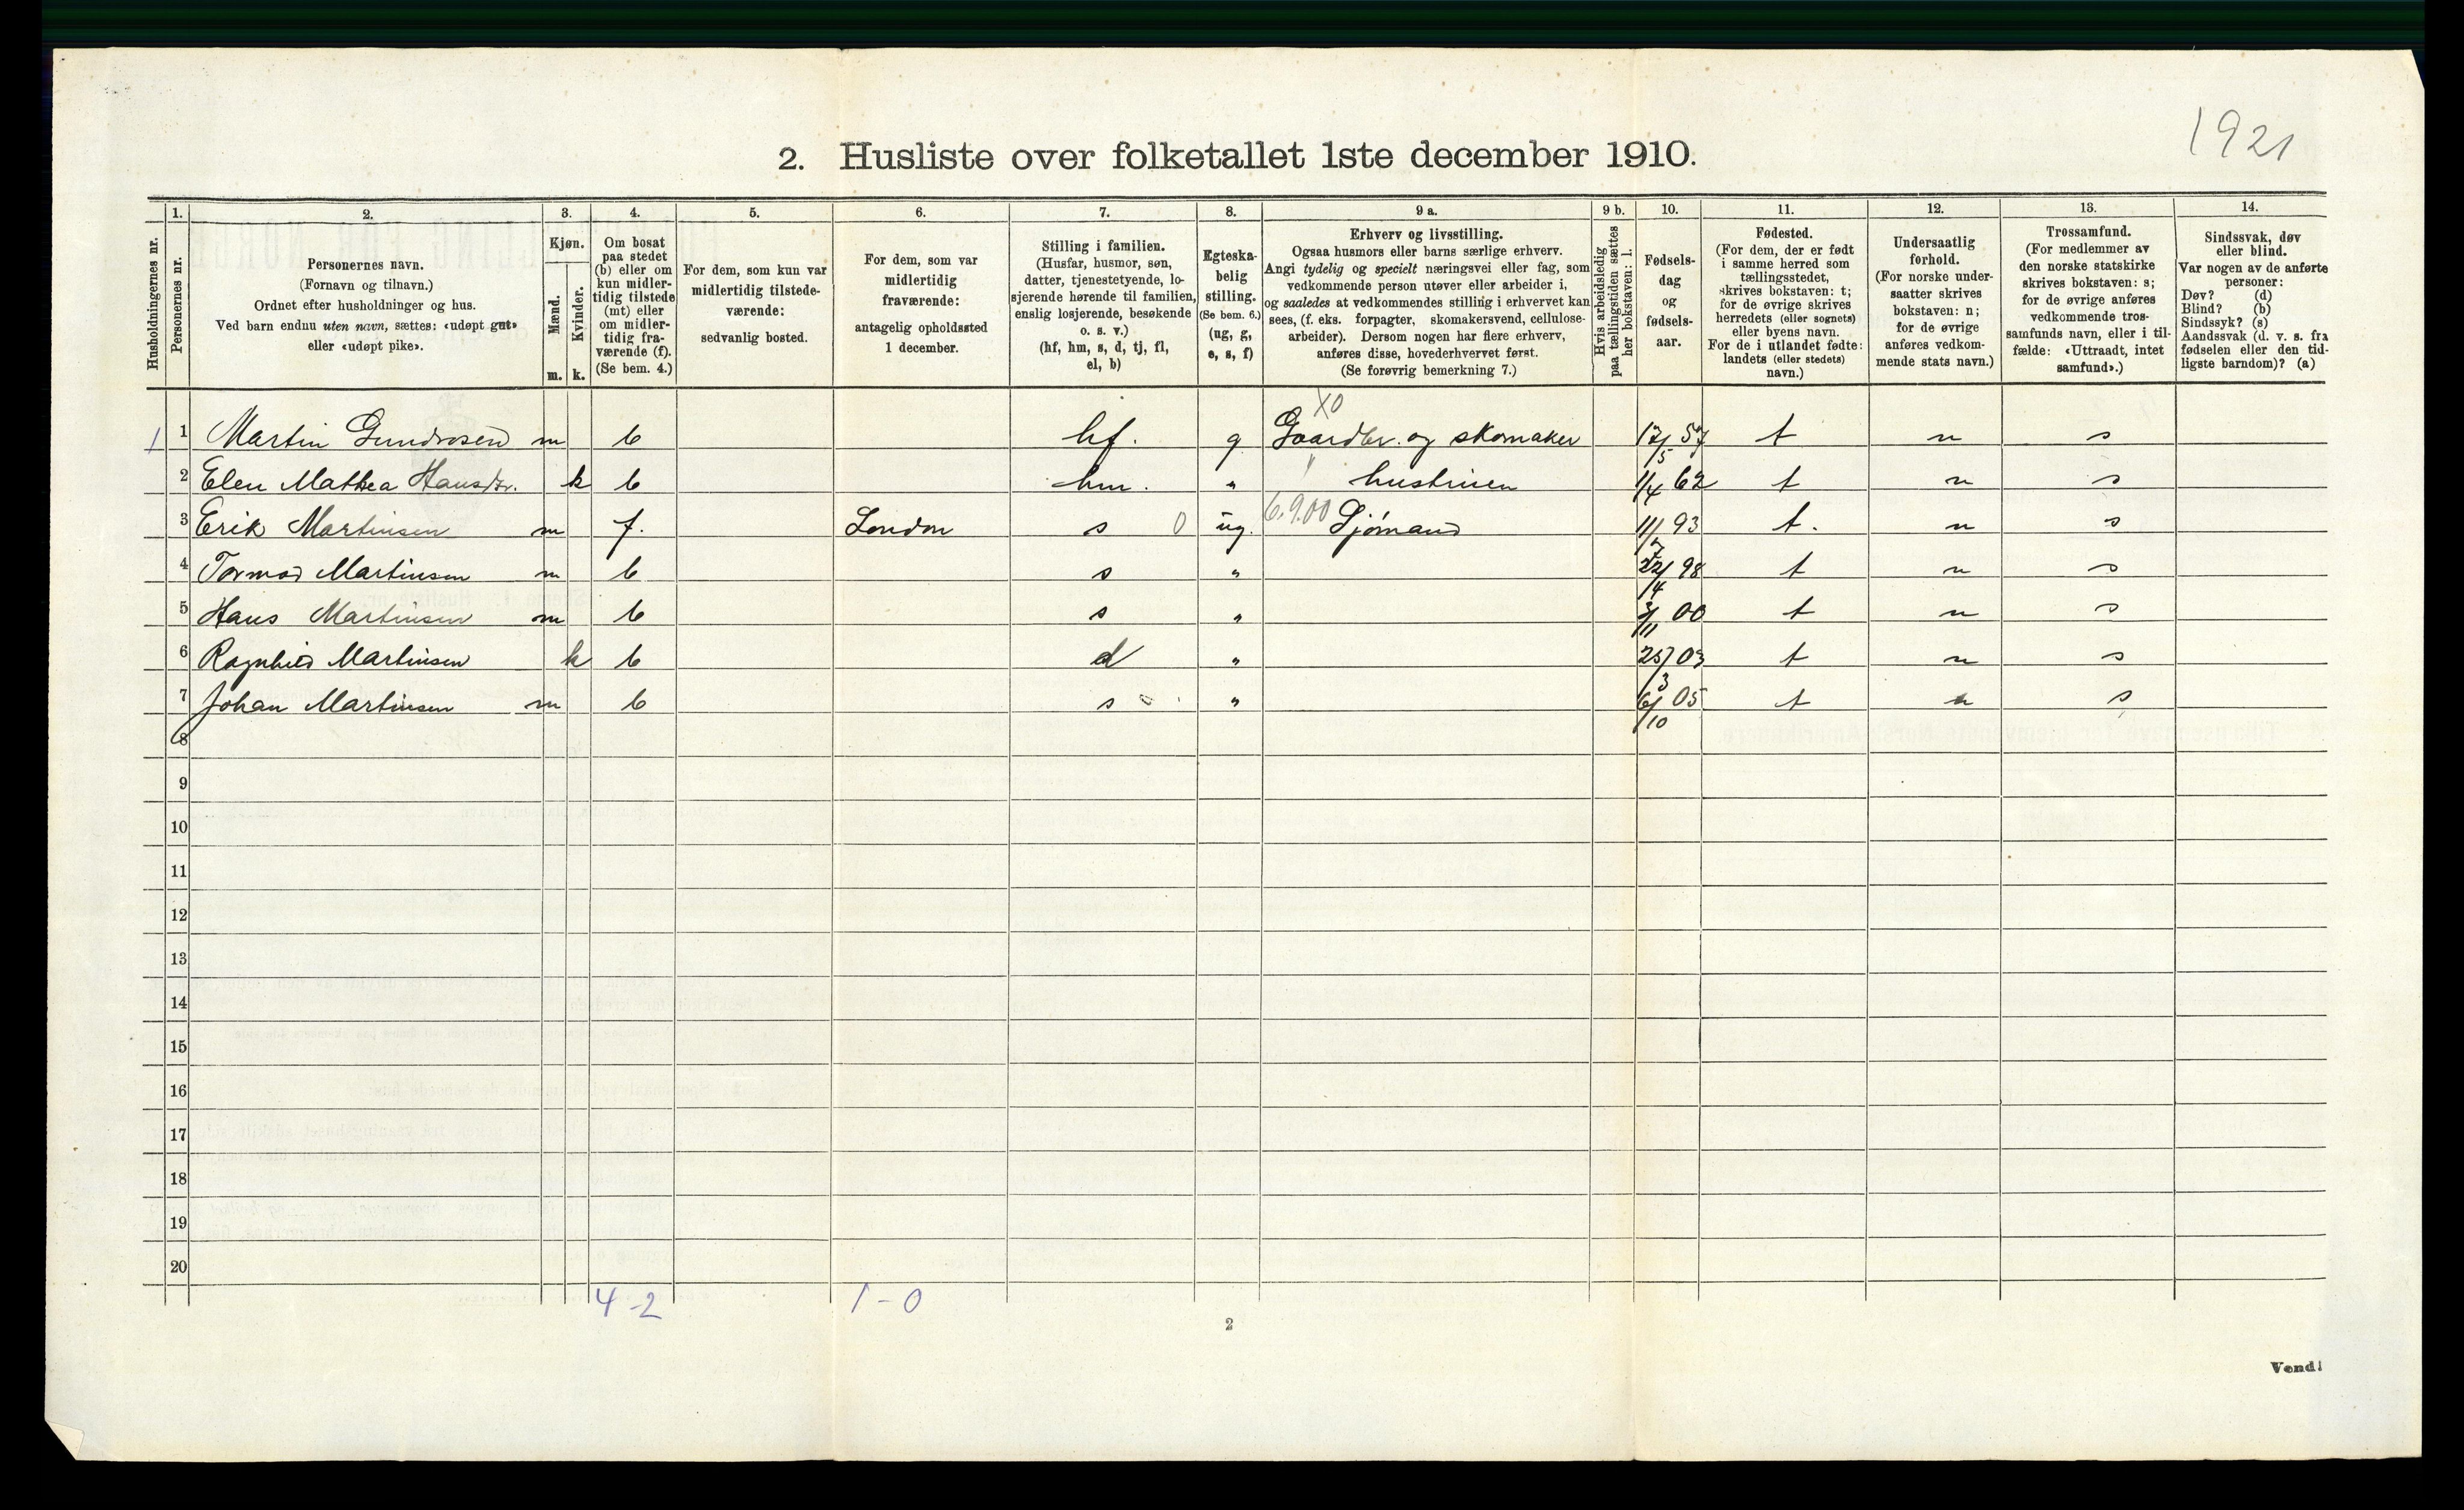 1921
2. Husliste over folketallet 1ste december 1910.
1. 2. 3. 4. 5. 6. 7. 8. 9 a. 9 b. 10. 11. 12. 13. 14.
Husholdningernes nr.
Personernes nr.
Personernes navn.
(Fornavn og tilnavn.)
Ordnet efter husholdninger og hus.
Ved barn endnu uten navn, sættes: «udøpt gut»
eller «udøpt pike».
Kjøn.
Mænd.
Kvinder.
m. k.
Om bosat
paa stedet
(b) eller om
kun midler-
tidig tilstede
(mt) eller
om midler-
tidig fra-
værende (f).
(Se bem. 4.)
For dem, som kun var
midlertidig tilstede-
værende:
sedvanlig bosted.
For dem, som var
midlertidig
fraværende:
antagelig opholdssted
1 december.
Stilling i familien.
(Husfar, husmor, søn,
datter, tjenestetyende, lo-
sjerende hørende til familien,
enslig losjerende, besøkende
o. s. v.)
(hf, hm, s, d, tj, fl,
el, b)
Egteska-
belig
stilling.
(Se bem. 6.)
(ug, g,
e, s, f)
Erhverv og livsstilling.
Ogsaa husmors eller barns særlige erhverv.
Angi tydelig og specielt næringsvei eller fag, som
vedkommende person utøver eller arbeider i,
og saaledes at vedkommendes stilling i erhvervet kan
sees, (f. eks. forpagter, skomakersvend, cellulose-
arbeider). Dersom nogen har flere erhverv,
anføres disse, hovederhvervet først.
(Se forøvrig bemerkning 7.)
Hvis arbeidsledig
paa tællingstiden sættes
her bokstaven: l.
Fødsels-
dag
og
fødsels-
aar.
Fødested.
(For dem, der er født
i samme herred som
tællingsstedet,
skrives bokstaven: t;
for de øvrige skrives
herredets (eller sognets)
eller byens navn.
For de i utlandet fødte:
landets (eller stedets)
navn.)
Undersaatlig
forhold.
(For norske under-
saatter skrives
bokstaven: n;
for de øvrige
anføres vedkom-
mende stats navn.)
Trossamfund.
(For medlemmer av
den norske statskirke
skrives bokstaven: s;
for de øvrige anføres
vedkommende tros-
samfunds navn, eller i til-
fælde: «Uttraadt, intet
samfund».)
Sindssvak, døv
eller blind.
Var nogen av de anførte
personer:
Døv? (d)
Blind? (b)
Sindssyk? (s)
Aandssvak (d. v. s. fra
fødselen eller den tid-
ligste barndom)? (a)
X0
1 1 Martin Gundrosen m b hf. g Gaardbr. og skomaker 17/5 57 t n s
2 Elen Mathea Hansdtr. k b hm. " hustruen 1/4 62 t n s
3 Erik Martinsen m f. London s 0 ug. 6.9.00 Sjømand 11/7 93 t. n s
4 Tormod Martinsen m b s " 22/4 98 t n s
5 Hans Martinsen m b s " 3/11 00 t n s
6 Ragnhild Martinsen k b d " 25/3 03 t n s
7 Johan Martinsen m b s " 6/10 05 t n s
8
9
10
11
12
13
14
15
16
17
18
19
20
4-2 1-0
2
Vend!